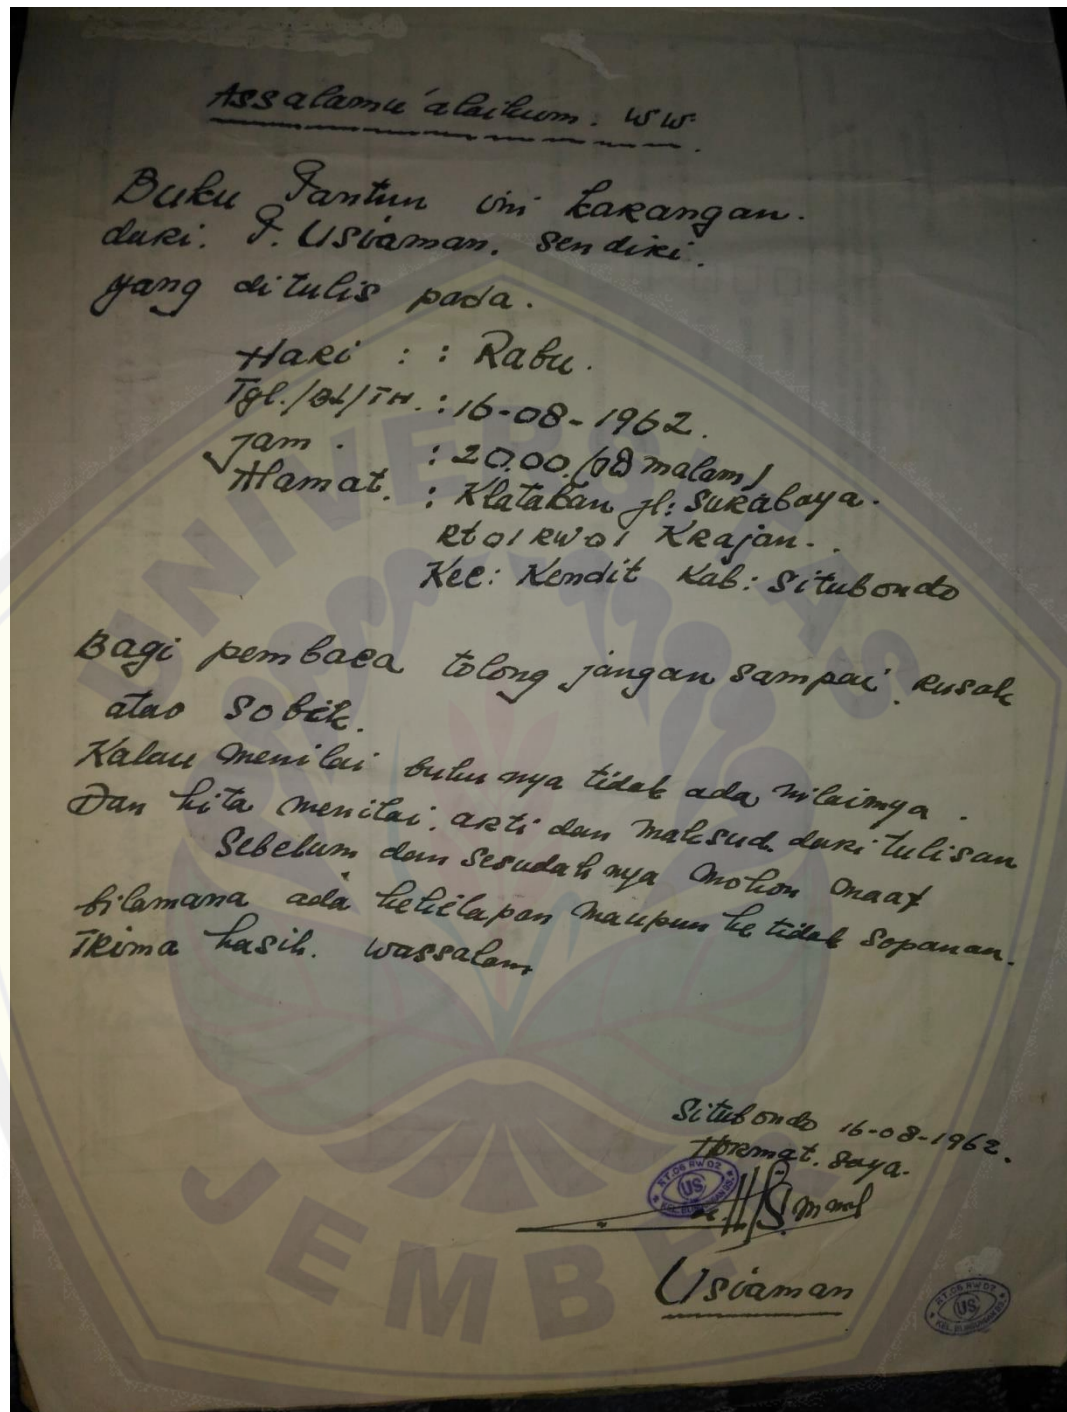 Assalamu'alaikum. WW.
Buku Pantun ini karangan.
dari. P. Usiaman. sendiri.
yang ditulis pada.
Hari : : Rabu.
Tgl./Bl/TH. : 16-08-1962.
Jam . : 20.00./08 malam/
Alamat. : Klatakan jl: Surabaya.
Rt 01 RW 01 Krajan..
Kec: Kendit Kab: Situbondo
Bagi pembaca tolong jangan sampai rusak
atao sobek.
Kalau menilai bukunya tidak ada nilainya.
Dan kita menilai. arti dan maksud dari tulisan
Sebelum dan sesudahnya mohon maaf
bilamana ada kekilapan maupun ketidak sopanan.
Trima kasih. Wassalam
Situbondo 16-08-1962.
Hormat. Saya.
RT.06 RW 02
US
Usiaman
RT.06 RW 02
US
UNIVERSITAS
JEMBER